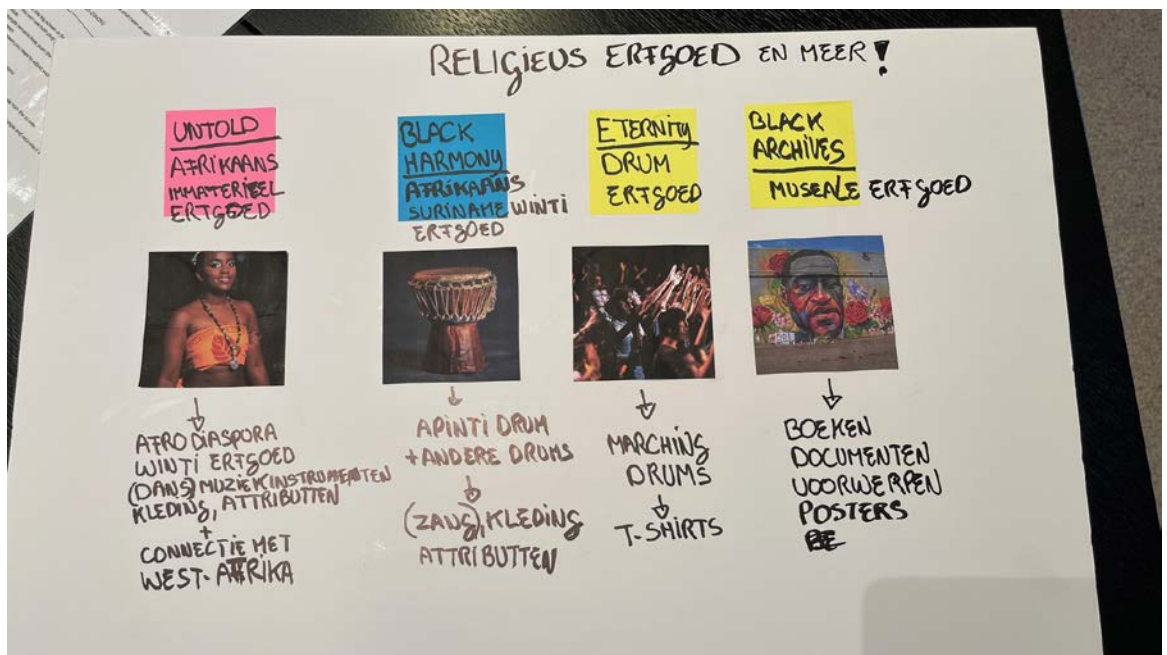 RELIGIEUS ERFGOED EN MEER!
UNTOLD
AFRIKAANS
IMMATERIEEL
ERFGOED
BLACK
HARMONY
AFRIKAANS
SURINAME WINTI
ERFGOED
ETERNITY
DRUM
ERFGOED
BLACK
ARCHIVES
MUSEALE ERFGOED
AFRO DIASPORA
WINTI ERFGOED
(DANS) MUZIEKINSTRUMENTEN
KLEDING, ATTRIBUTTEN
+
CONNECTIE MET
WEST-AFRIKA
APINTI DRUM
+ ANDERE DRUMS
(ZANG), KLEDING
ATTRIBUTTEN
MARCHING
DRUMS
T-SHIRTS
BOEKEN
DOCUMENTEN
VOORWERPEN
POSTERS